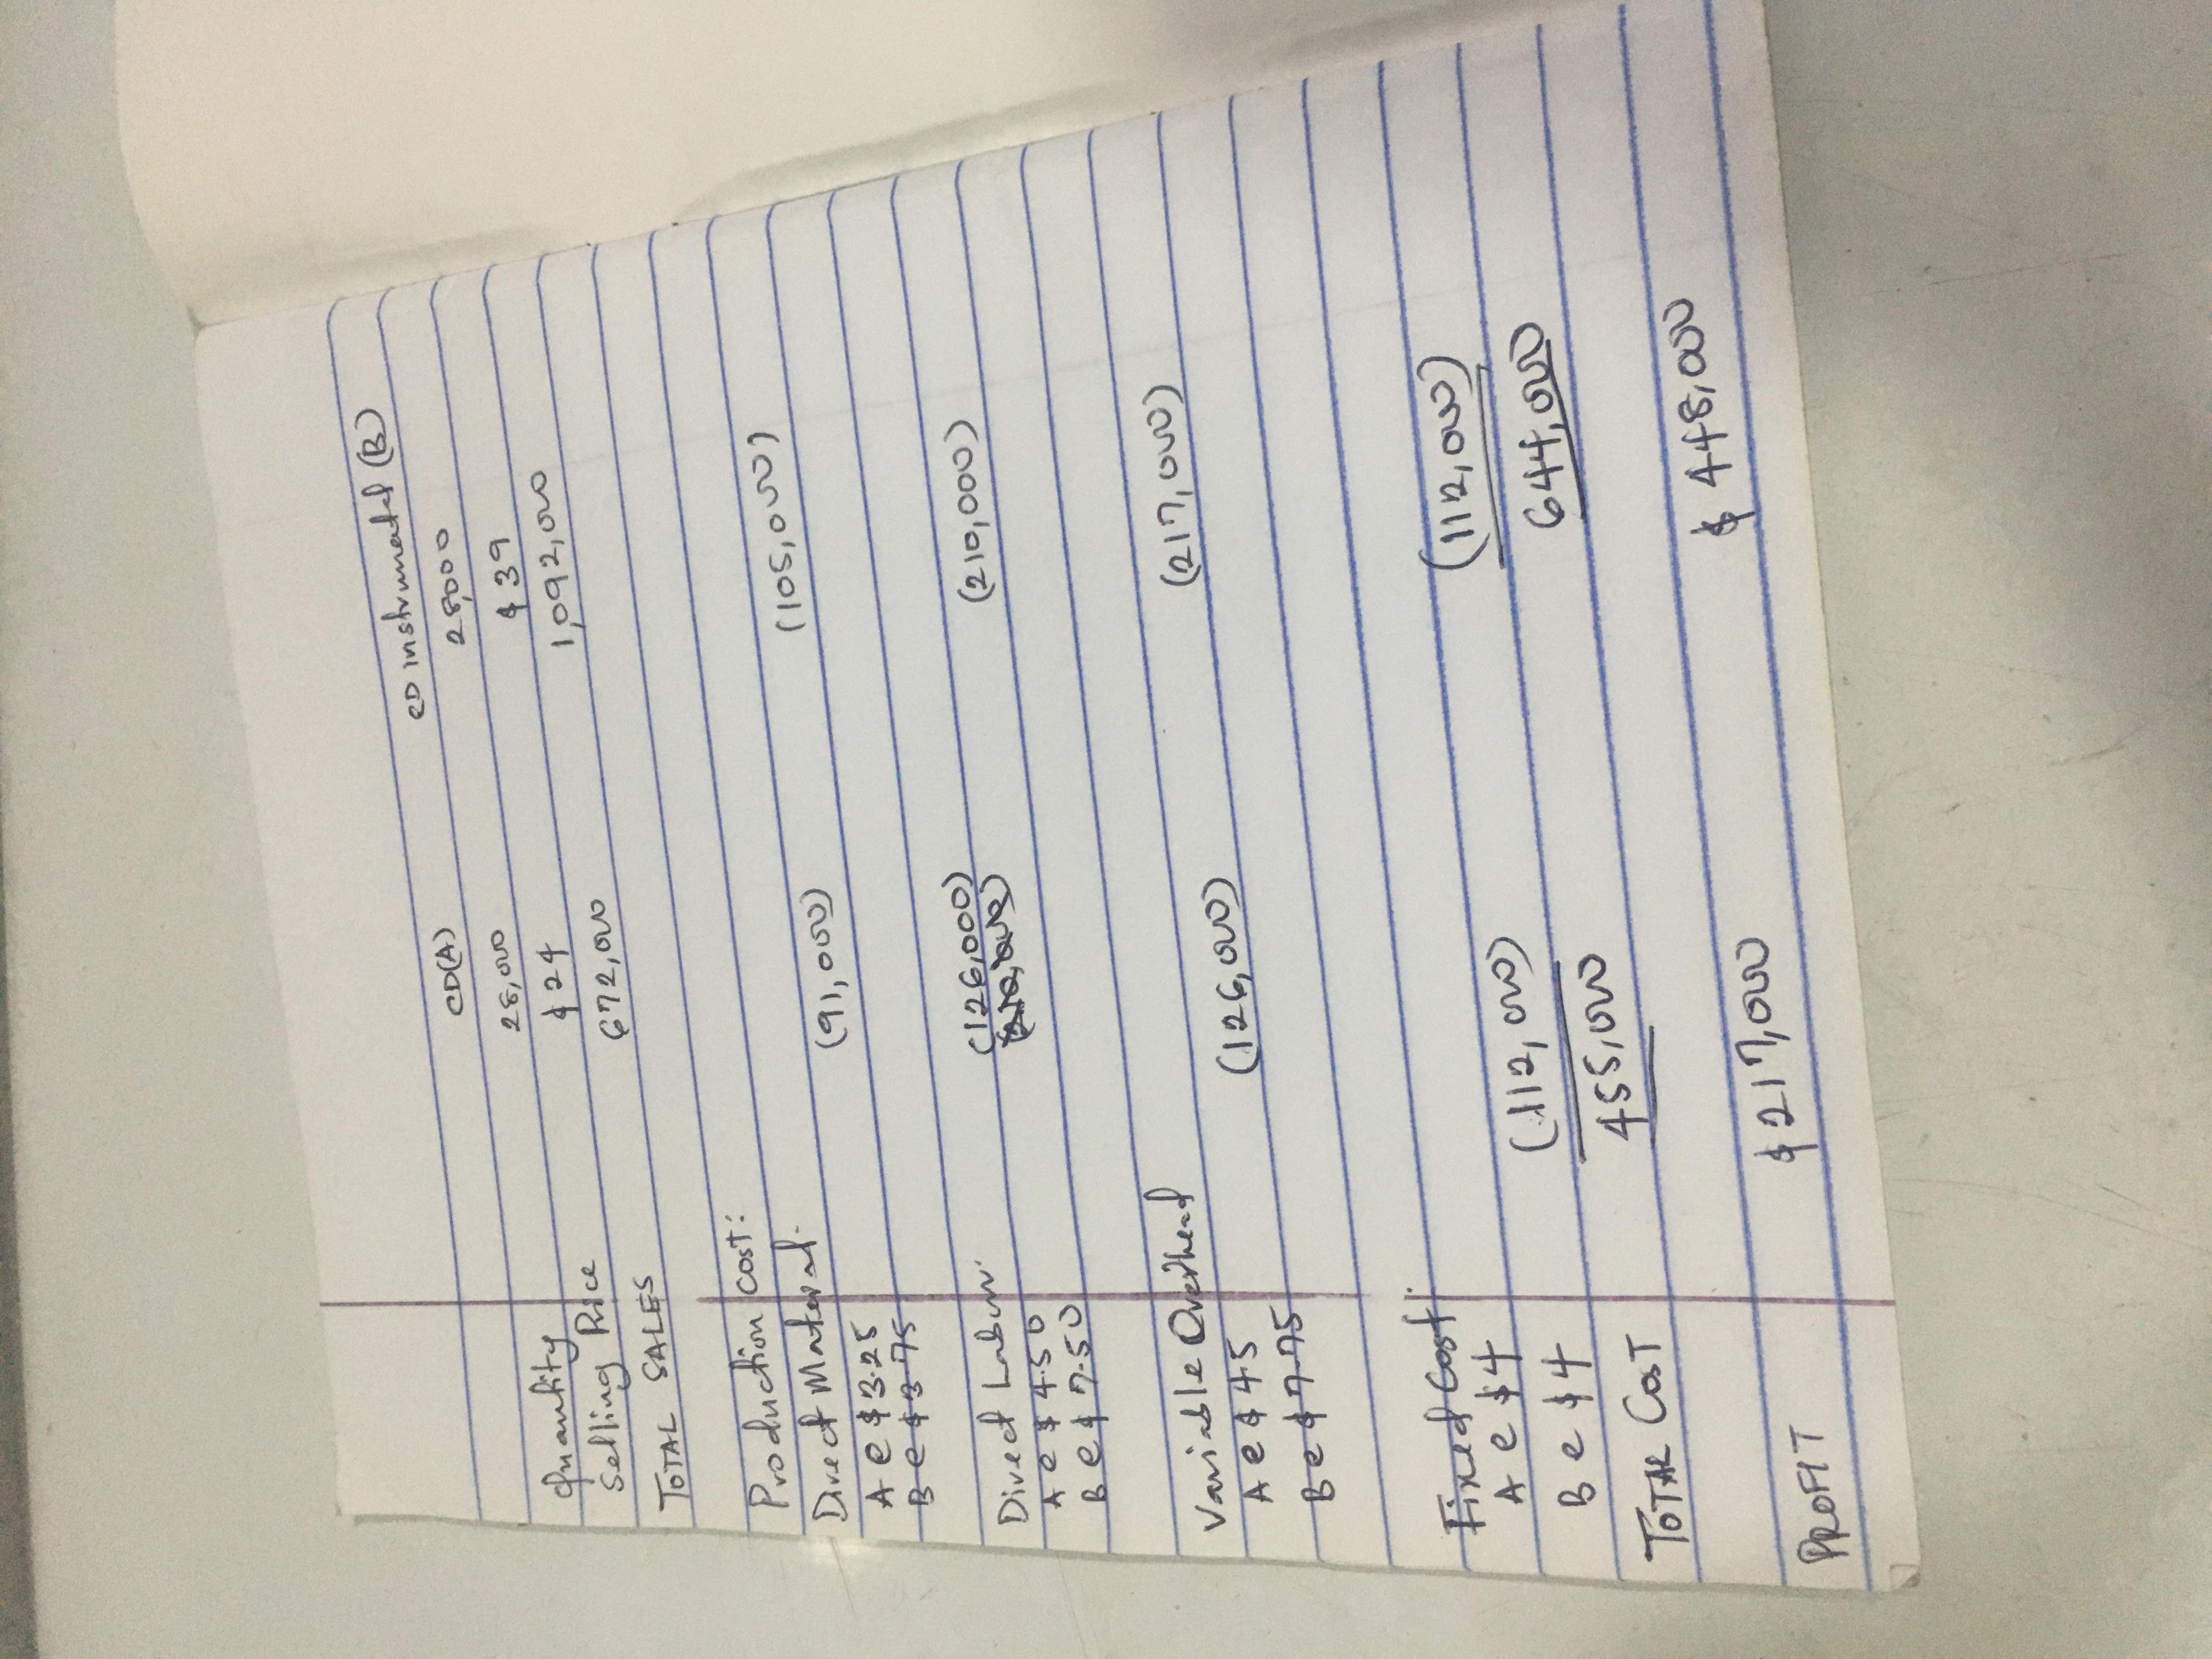 CD(A) CD Instrumental (B)
Quantity 28,000 28,000
Selling Price $24 $39
TOTAL SALES 672,000 1,092,000
Production Cost:
Direct Material. (91,000) (105,000)
A @ $3.25
B @ $3.75
Direct Labour. (126,000) (210,000)
A @ $4.50
B @ $7.50
Variable Overhead (126,000) (217,000)
A @ $4.5
B @ $7.75
Fixed Cost. (112,000)
A @ $4 (112,000)
B @ $4 455,000 644,000
TOTAL COST
PROFIT $217,000 $448,000